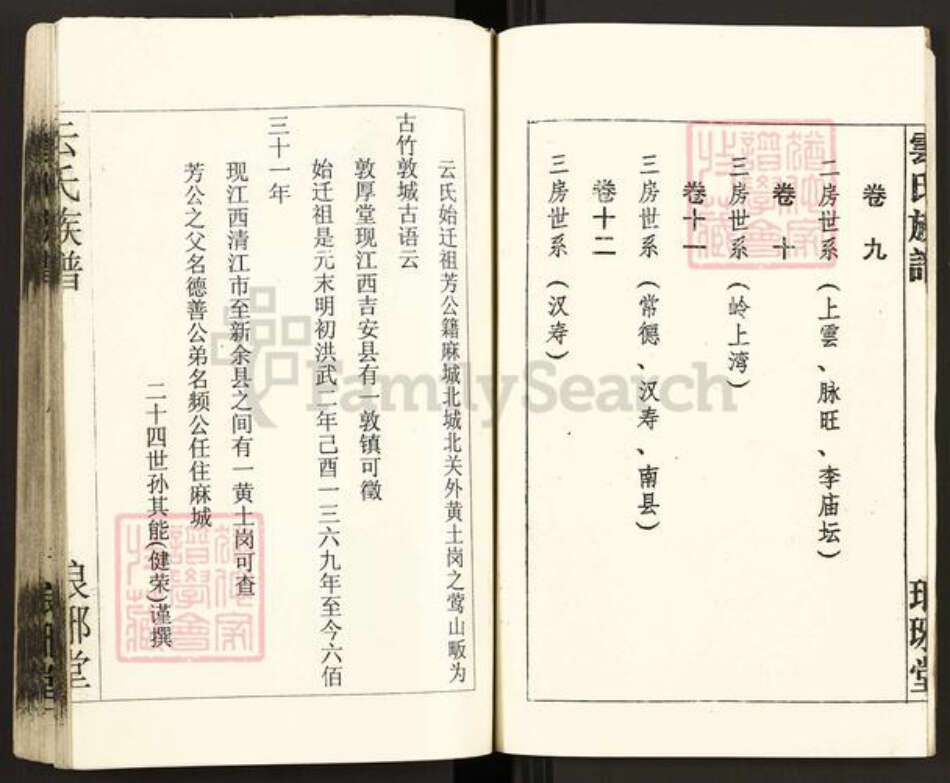 雲氏族譜
琅琊堂
卷九
二房世系(上雲、脉旺、李庙坛)
卷十
三房世系(岭上湾)
卷十一
三房世系(常德、汉寿、南县)
卷十二
三房世系(汉寿)
云氏始迁祖芳公籍麻城北城北关外黄土岗之莺山畈为
古竹敦城古语云
敦厚堂现江西吉安县有一敦镇可徵
始迁祖是元末明初洪武二年己酉一三六九年至今六佰
三十一年
现江西清江市至新余县之间有一黄土岗可查
芳公之父名德善公弟名频公任住麻城
二十四世孙其能(健荣)谨撰
云氏族谱
八
琅琊堂
FamilySearch